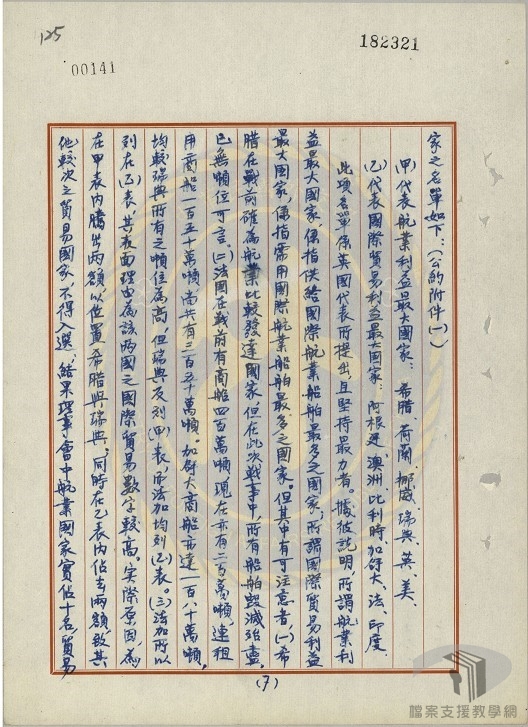 125
182321
00141
家之名單如下：（公約附件（一））
（甲）代表航業利益最大國家：希腊、荷蘭、挪威、瑞典、英、美、
（乙）代表國際貿易利益最大國家：阿根廷、澳洲、比利時、加拿大、法、印度、
此項名單係英國代表所提出，且堅持最力者。據彼說明，所謂航業利
益最大國家，係指供給國際航業船舶最多之國家，所謂國際貿易利益
最大國家，係指需用國際航業船舶最多之國家。但其中有可注意者，（一）希
腊在戰前確為航業比較發達國家，但在此次戰事中，所有船舶毀滅殆盡，
已無噸位可言。（二）法國在戰前有商船四百萬噸，現在亦有二百萬噸，連租
用商船一百五十萬噸，尚共有三百五十萬噸。加拿大商船亦達一百八十萬噸，
均較瑞典所有之噸位為高，但瑞典反列（甲）表，而法加均列（乙）表。（三）法加所以
列在（乙）表，其表面理由為該兩國之國際貿易數字較高，实際原因，為
在甲表內騰出兩額，以位置希腊與瑞典，同時在乙表內佔去兩額，致其
他較次之貿易國家，不得入選，結果理事會中航業國家實佔十名，貿易
（7）
檔案支援教學網